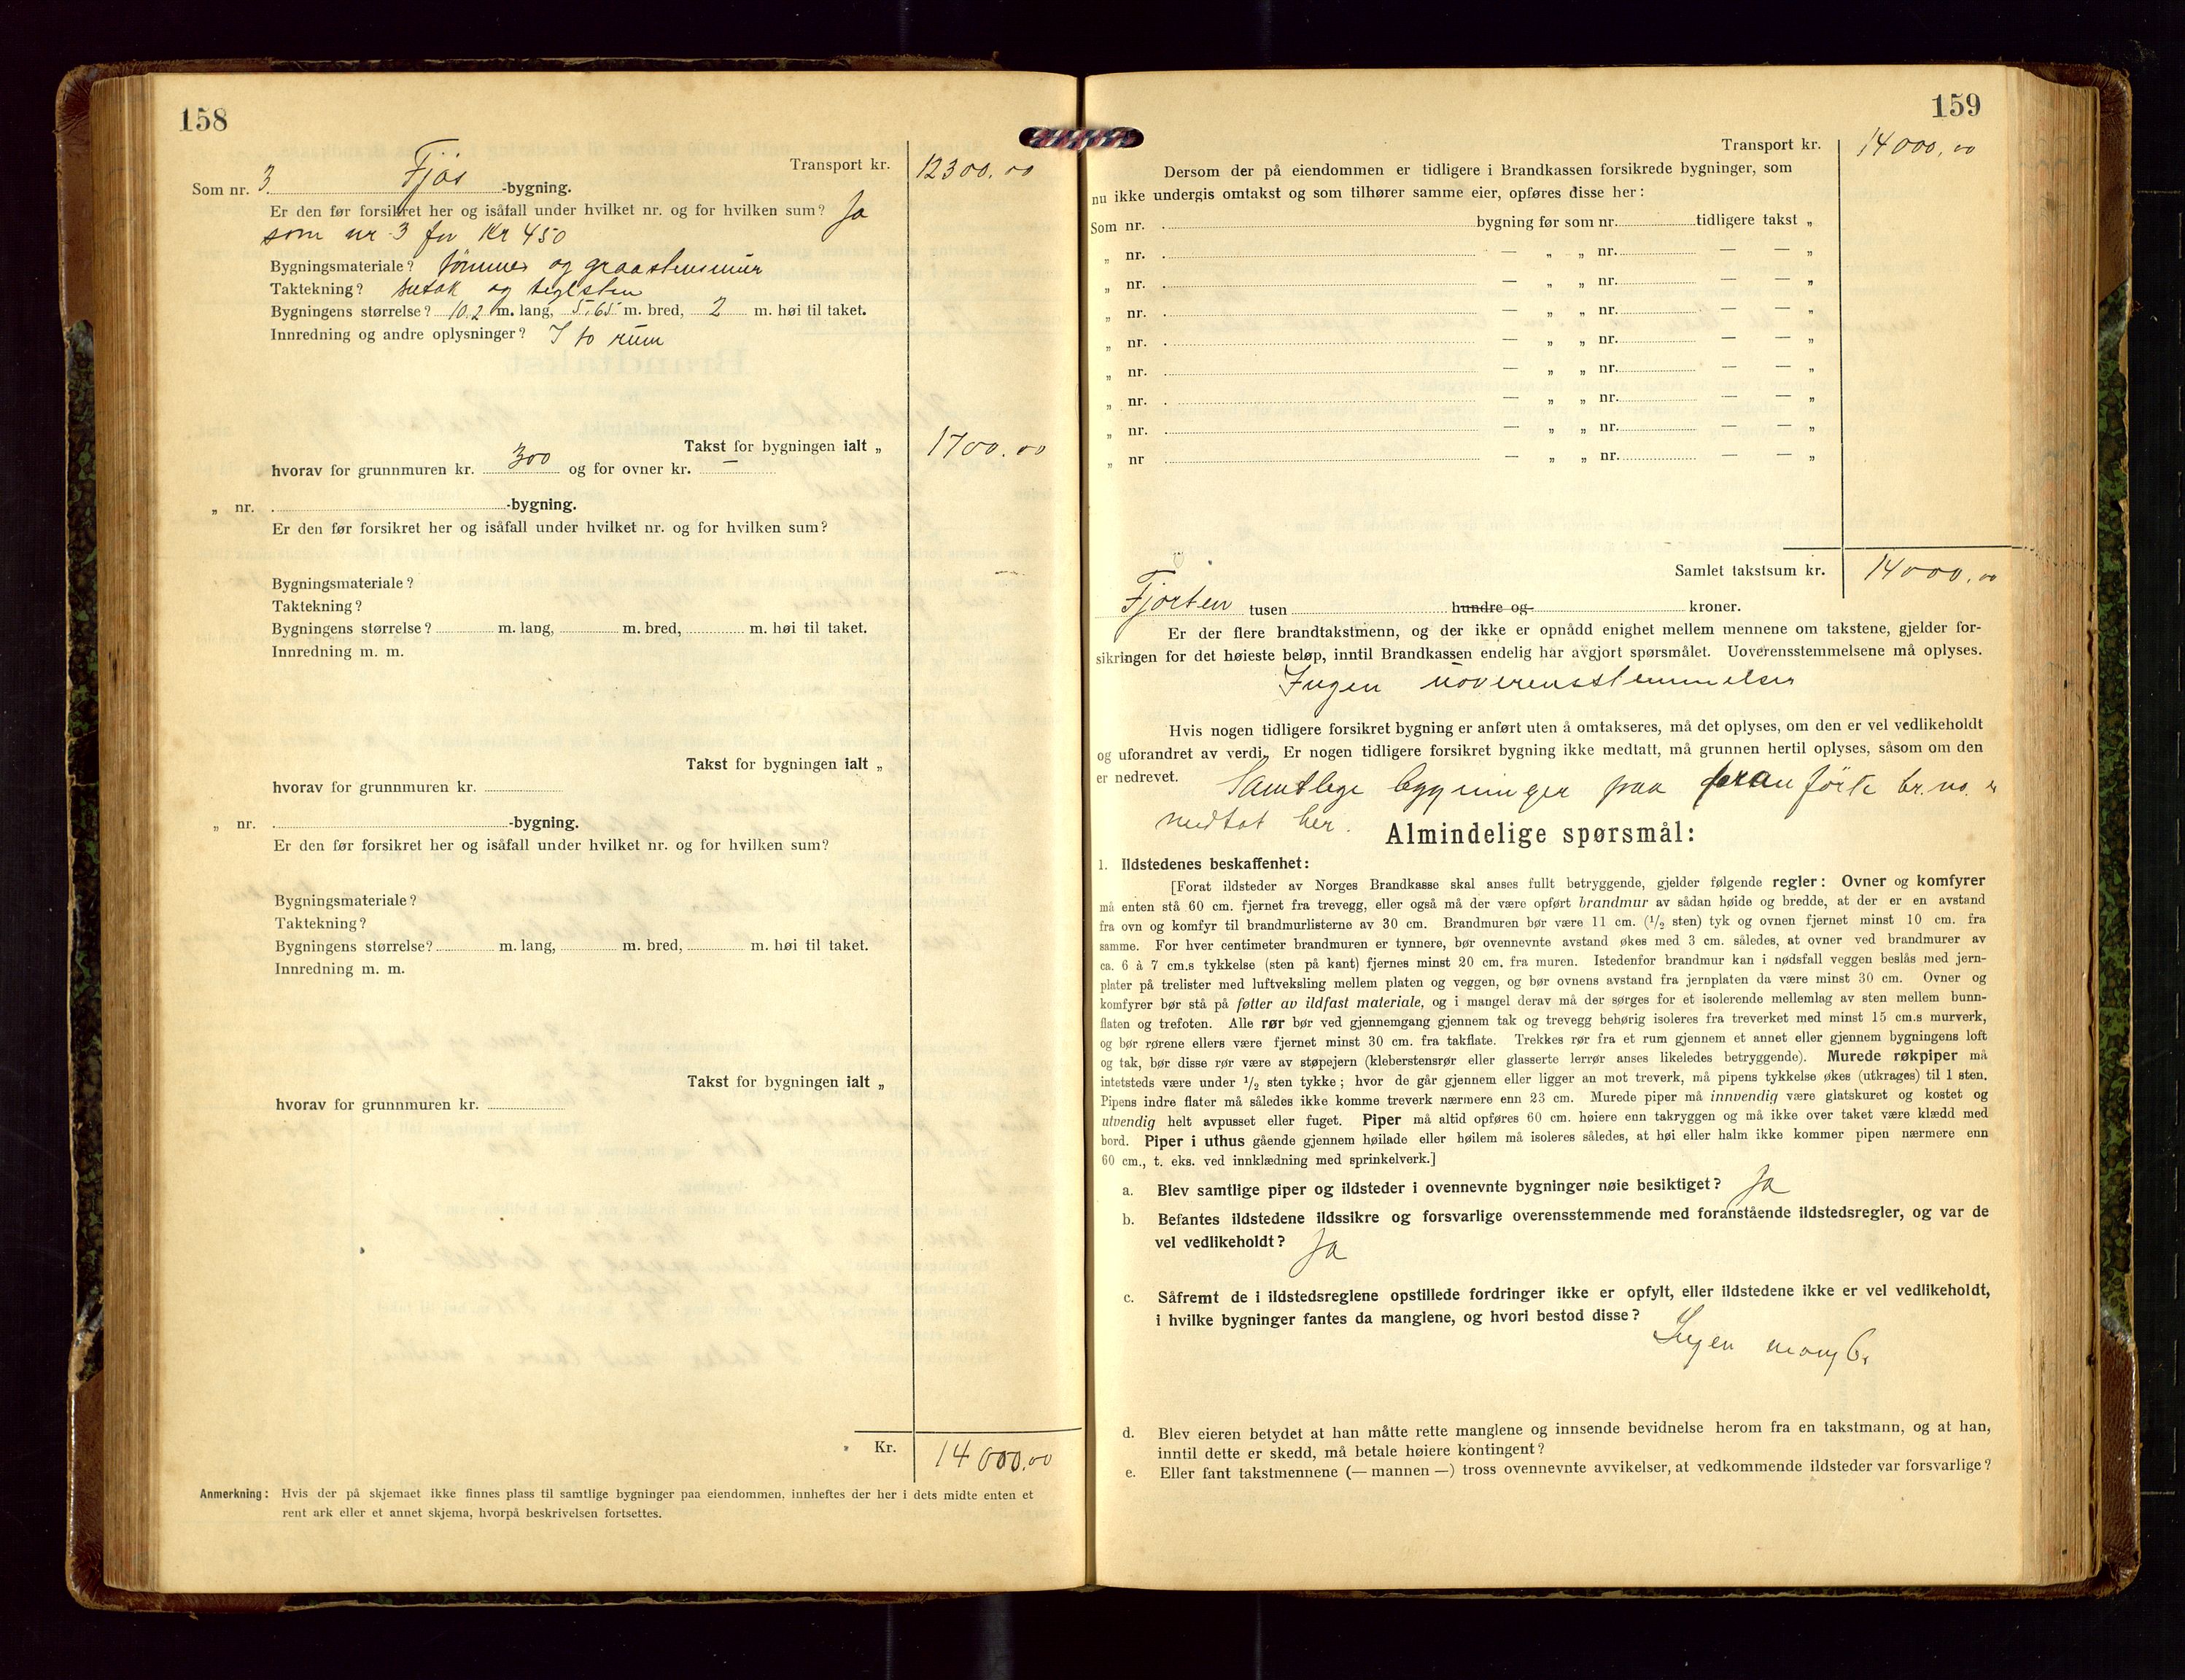 158
Transport kr. 12300.00
Som nr. 3. Fjøs -bygning.
Er den før forsikret her og isåfall under hvilket nr. og for hvilken sum? Ja
som nr 3 for Kr 450
Bygningsmateriale? tømmer og graastensmur
Taktekning? sutak og teglsten
Bygningens størrelse? 10,2 m. lang, 5,65 m. bred, 2 m. høi til taket.
Innredning og andre oplysninger? I to rum
Takst for bygningen ialt „ 1700.00
hvorav for grunnmuren kr. 300 og for ovner kr. —
„ nr. -bygning.
Er den før forsikret her og isåfall under hvilket nr. og for hvilken sum?
Bygningsmateriale?
Taktekning?
Bygningens størrelse? m. lang, m. bred, m. høi til taket.
Innredning m. m.
Takst for bygningen ialt „
hvorav for grunnmuren kr.
„ nr. -bygning.
Er den før forsikret her og isåfall under hvilket nr. og for hvilken sum?
Bygningsmateriale?
Taktekning?
Bygningens størrelse? m. lang, m. bred, m. høi til taket.
Innredning m. m.
Takst for bygningen ialt „
hvorav for grunnmuren kr.
Kr. 14000.00
Anmerkning: Hvis der på skjemaet ikke finnes plass til samtlige bygninger paa eiendommen, innheftes der her i dets midte enten et
rent ark eller et annet skjema, hvorpå beskrivelsen fortsettes.
159
Transport kr. 14000.00
Dersom der på eiendommen er tidligere i Brandkassen forsikrede bygninger, som
nu ikke undergis omtakst og som tilhører samme eier, opføres disse her:
Som nr. bygning før som nr. tidligere takst „
„ nr. — „ „ nr. — — „
„ nr. — „ „ nr. — — „
„ nr. — „ „ nr. — — „
„ nr. — „ „ nr. — — „
„ nr. — „ „ nr. — — „
„ nr. — „ „ nr. — — „
„ nr. — „ „ nr. — — „
„ nr — „ „ nr. — — „
Samlet takstsum kr. 14000.00
Fjorten tusen hundre og kroner.
Er der flere brandtakstmenn, og der ikke er opnådd enighet mellem mennene om takstene, gjelder for-
sikringen for det høieste beløp, inntil Brandkassen endelig har avgjort spørsmålet. Uoverensstemmelsene må oplyses.
Ingen uoverensstemmelser
Hvis nogen tidligere forsikret bygning er anført uten å omtakseres, må det oplyses, om den er vel vedlikeholdt
og uforandret av verdi. Er nogen tidligere forsikret bygning ikke medtatt, må grunnen hertil oplyses, såsom om den
er nedrevet. Samtlege bygninger paa foran førte br.no. er
medtat her.
Almindelige spørsmål:
1. Ildstedenes beskaffenhet:
[Forat ildsteder av Norges Brandkasse skal anses fullt betryggende, gjelder følgende regler: Ovner og komfyrer
må enten stå 60 cm. fjernet fra trevegg, eller også må der være opført brandmur av sådan høide og bredde, at der er en avstand
fra ovn og komfyr til brandmurlisterne av 30 cm. Brandmuren bør være 11 cm. (1/2 sten) tyk og ovnen fjernet minst 10 cm. fra
samme. For hver centimeter brandmuren er tynnere, bør ovennevnte avstand økes med 3 cm. således, at ovner ved brandmurer av
ca. 6 à 7 cm.s tykkelse (sten på kant) fjernes minst 20 cm. fra muren. Istedenfor brandmur kan i nødsfall veggen beslås med jern-
plater på trelister med luftveksling mellem platen og veggen, og bør ovnens avstand fra jernplaten da være minst 30 cm. Ovner og
komfyrer bør stå på føtter av ildfast materiale, og i mangel derav må der sørges for et isolerende mellemlag av sten mellem bunn-
flaten og trefoten. Alle rør bør ved gjennemgang gjennem tak og trevegg behørig isoleres fra treverket med minst 15 cm.s murverk,
og bør rørene ellers være fjernet minst 30 cm. fra takflate. Trekkes rør fra et rum gjennem et annet eller gjennem bygningens loft
og tak, bør disse rør være av støpejern (kleberstensrør eller glasserte lerrør anses likeledes betryggende). Murede røkpiper må
intetsteds være under 1/2 sten tykke; hvor de går gjennem eller ligger an mot treverk, må pipens tykkelse økes (utkrages) til 1 sten.
Pipens indre flater må således ikke komme treverk nærmere enn 23 cm. Murede piper må innvendig være glatskuret og kostet og
utvendig helt avpusset eller fuget. Piper må altid opføres 60 cm. høiere enn takryggen og må ikke over taket være klædd med
bord. Piper i uthus gående gjennem høilade eller høilem må isoleres således, at høi eller halm ikke kommer pipen nærmere enn
60 cm., t. eks. ved innklædning med sprinkelverk.]
a. Blev samtlige piper og ildsteder i ovennevnte bygninger nøie besiktiget? Ja
b. Befantes ildstedene ildssikre og forsvarlige overensstemmende med foranstående ildstedsregler, og var de
vel vedlikeholdt? Ja
c. Såfremt de i ildstedsreglene opstillede fordringer ikke er opfylt, eller ildstedene ikke er vel vedlikeholdt,
i hvilke bygninger fantes da manglene, og hvori bestod disse?
Ingen mangler
d. Blev eieren betydet at han måtte rette manglene og innsende bevidnelse herom fra en takstmann, og at han,
inntil dette er skedd, må betale høiere kontingent?
e. Eller fant takstmennene (— mannen —) tross ovennevnte avvikelser, at vedkommende ildsteder var forsvarlige?